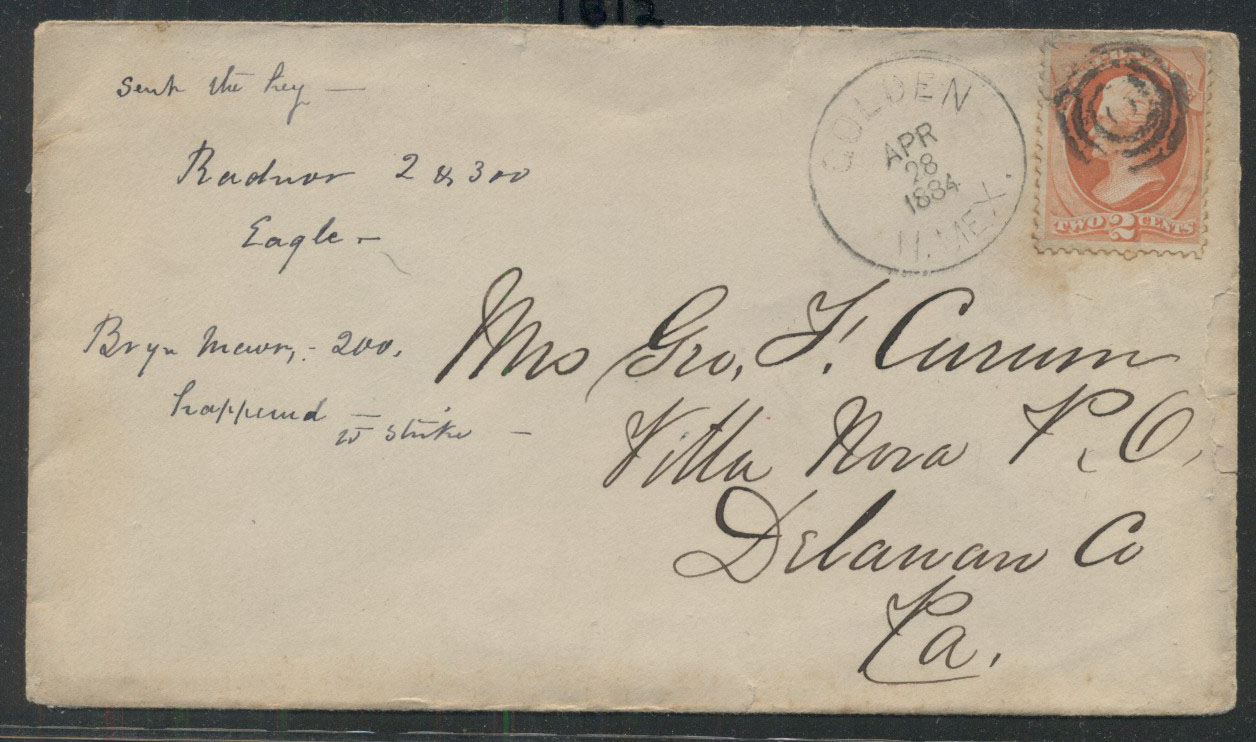 1612
Sent the key —
Radnor 2 & 300
Eagle –
Bryn Mawr, - 200.
happened —
to strike —
GOLDEN
APR
28
1884
N. MEX.
TWO 2 CENTS
Mrs Geo, F. Curwen
Villa Nova P. O.
Delaware Co
Pa.